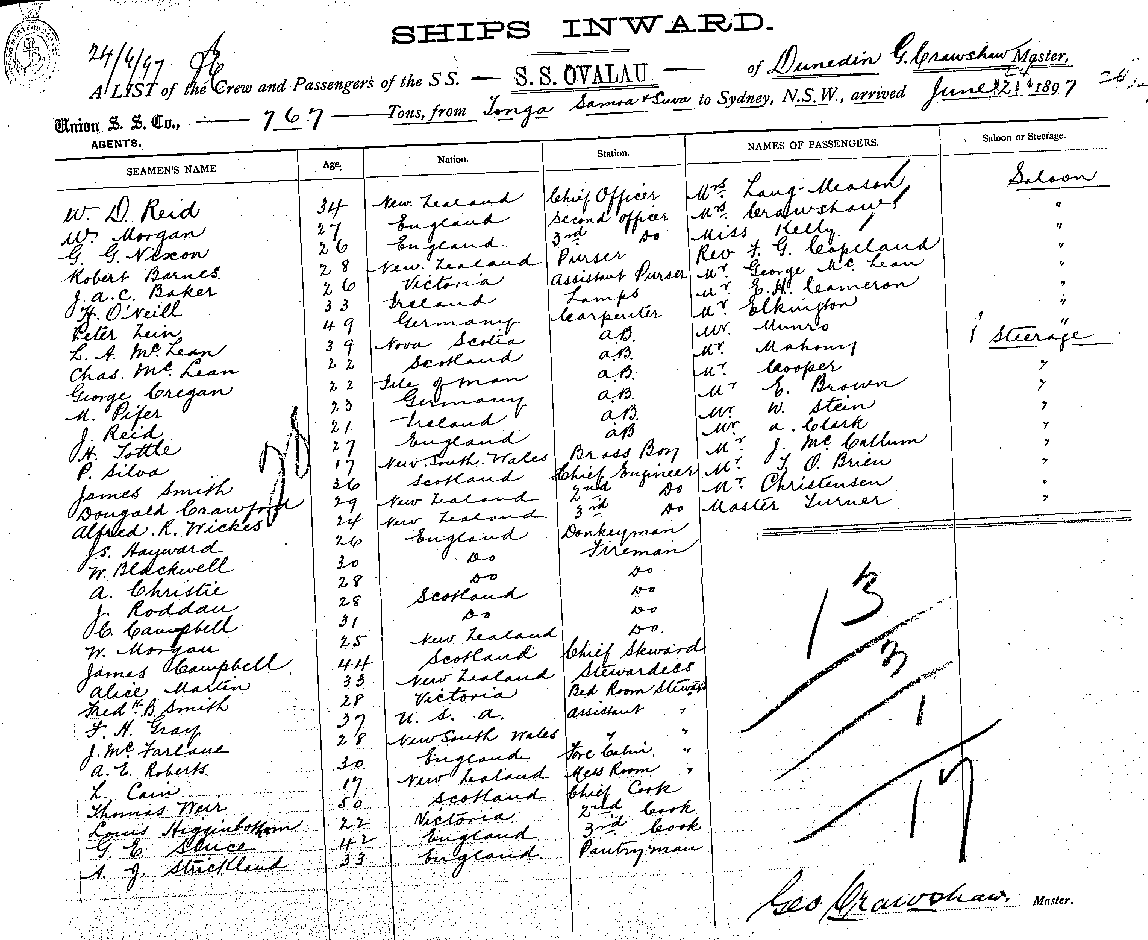 SHIPS INWARD.
24/6/97
A LIST of the Crew and Passengers of the S S. — S.S. OVALAU — of Dunedin G. Crawshaw Master,
Union S. S. Co., — 767 — Tons, from Tonga Samoa & Suva to Sydney, N.S.W., arrived June 1897
AGENTS.
SEAMEN'S NAME Age. Nation. Station. NAMES OF PASSENGERS. Saloon or Steerage.
W. D. Reid 34 New Zealand Chief Officer Mrs Lang-Meason Saloon
Wm Morgan 27 England Second officer Mrs Crawshaw "
G. G. Nixon 26 England 3rd Do Miss Kelly "
Robert Barnes 28 New Zealand Purser Rev F. G. Copeland "
J. A. C. Baker 26 Victoria Assistant Purser Mr George McLean "
H. O'Neill 33 Ireland Lamps Mr E. H. Cameron "
Peter Zein 49 Germany Carpenter Mr Elkington "
L. A. McLean 39 Nova Scotia A.B. Mr Munro "
Chas. McLean 22 Scotland A.B. Mr Mahony Steerage
George Cregan 22 Isle of Man A.B. Mr Cooper "
M. Pifer 23 Germany A.B. Mr E. Brown "
J. Reid 21 Ireland A.B. Mr W. Stein "
H. Tottle 27 England A.B. Mr A. Clark "
P. Silva 17 New South Wales Brass Boy Mr J. McCallum "
James Smith 36 Scotland Chief Engineer Mr T. O'Brien "
Dougald Crawford 29 New Zealand 2nd Do Mr Christensen "
Alfred R. Wickes 24 New Zealand 3rd Do Master Turner "
Js. Hayward 26 England Donkeyman
W. Blackwell 30 Do Fireman
A. Christie 28 Do Do
J. Roddan 28 Scotland Do
C. Campbell 31 Do Do
W. Morgan 25 New Zealand Do
James Campbell 44 Scotland Chief Steward
Alice Martin 33 New Zealand Stewardess
Fredk B Smith 28 Victoria Bed Room Steward
F. H. Gray 37 U. S. A. Assistant "
J. McFarlane 28 New South Wales " "
A. E. Roberts 30 England Fore Cabin "
L. Cain 17 New Zealand Mess Room "
Thomas Weir 50 Scotland Chief Cook
Louis Higginbottom 22 Victoria 2nd Cook
G. E. 42 England 3rd Cook
A. J. Strickland 33 England Pantryman
38
13
3
1
17
Geo Crawshaw. Master.